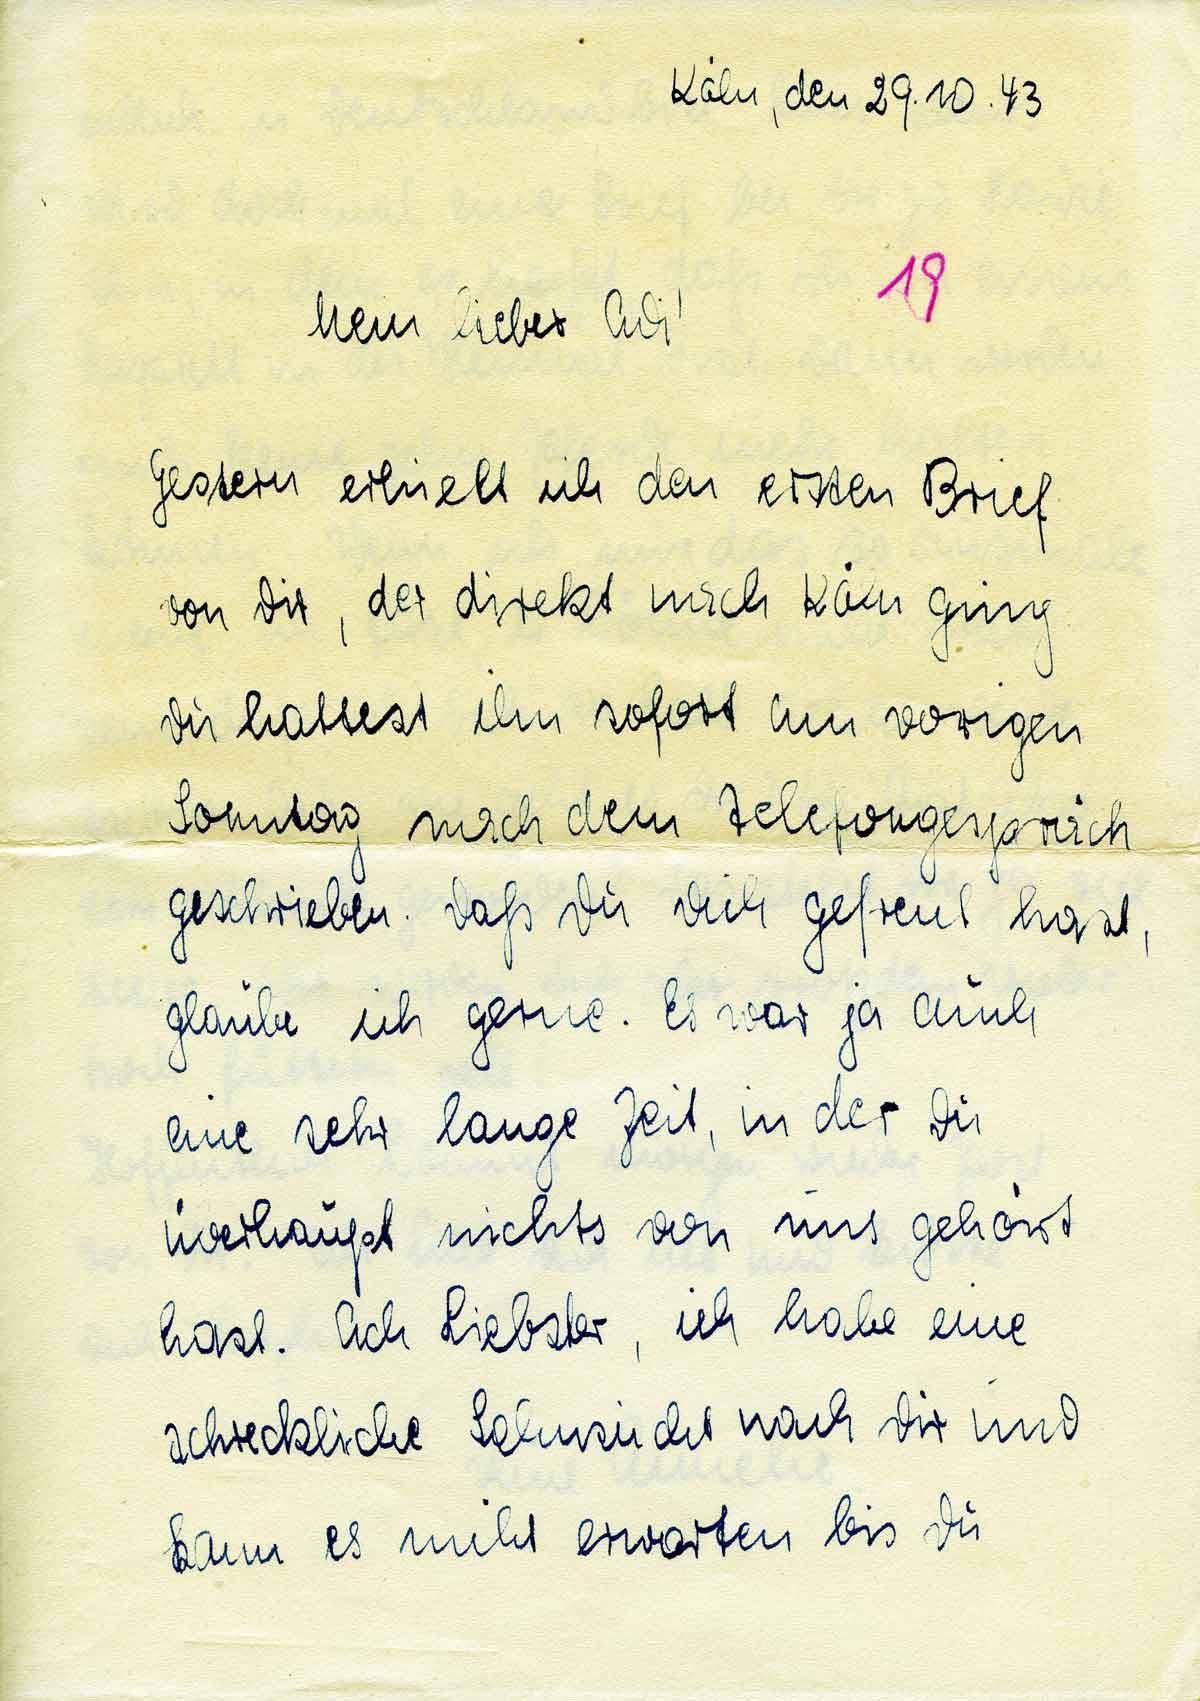 Köln, den 29.10.43
19
Mein lieber Adi!
Gestern erhielt ich den ersten Brief
von Dir, der direkt nach Köln ging
Du hattest ihn sofort am vorigen
Sonntag nach dem Telefongespräch
geschrieben. Daß Du Dich gefreut hast,
glaube ich gerne. Es war ja auch
eine sehr lange Zeit, in der Du
überhaupt nichts von uns gehört
hast. Ach Liebster, ich habe eine
schreckliche Sehnsucht nach Dir und
kann es nicht erwarten bis Du